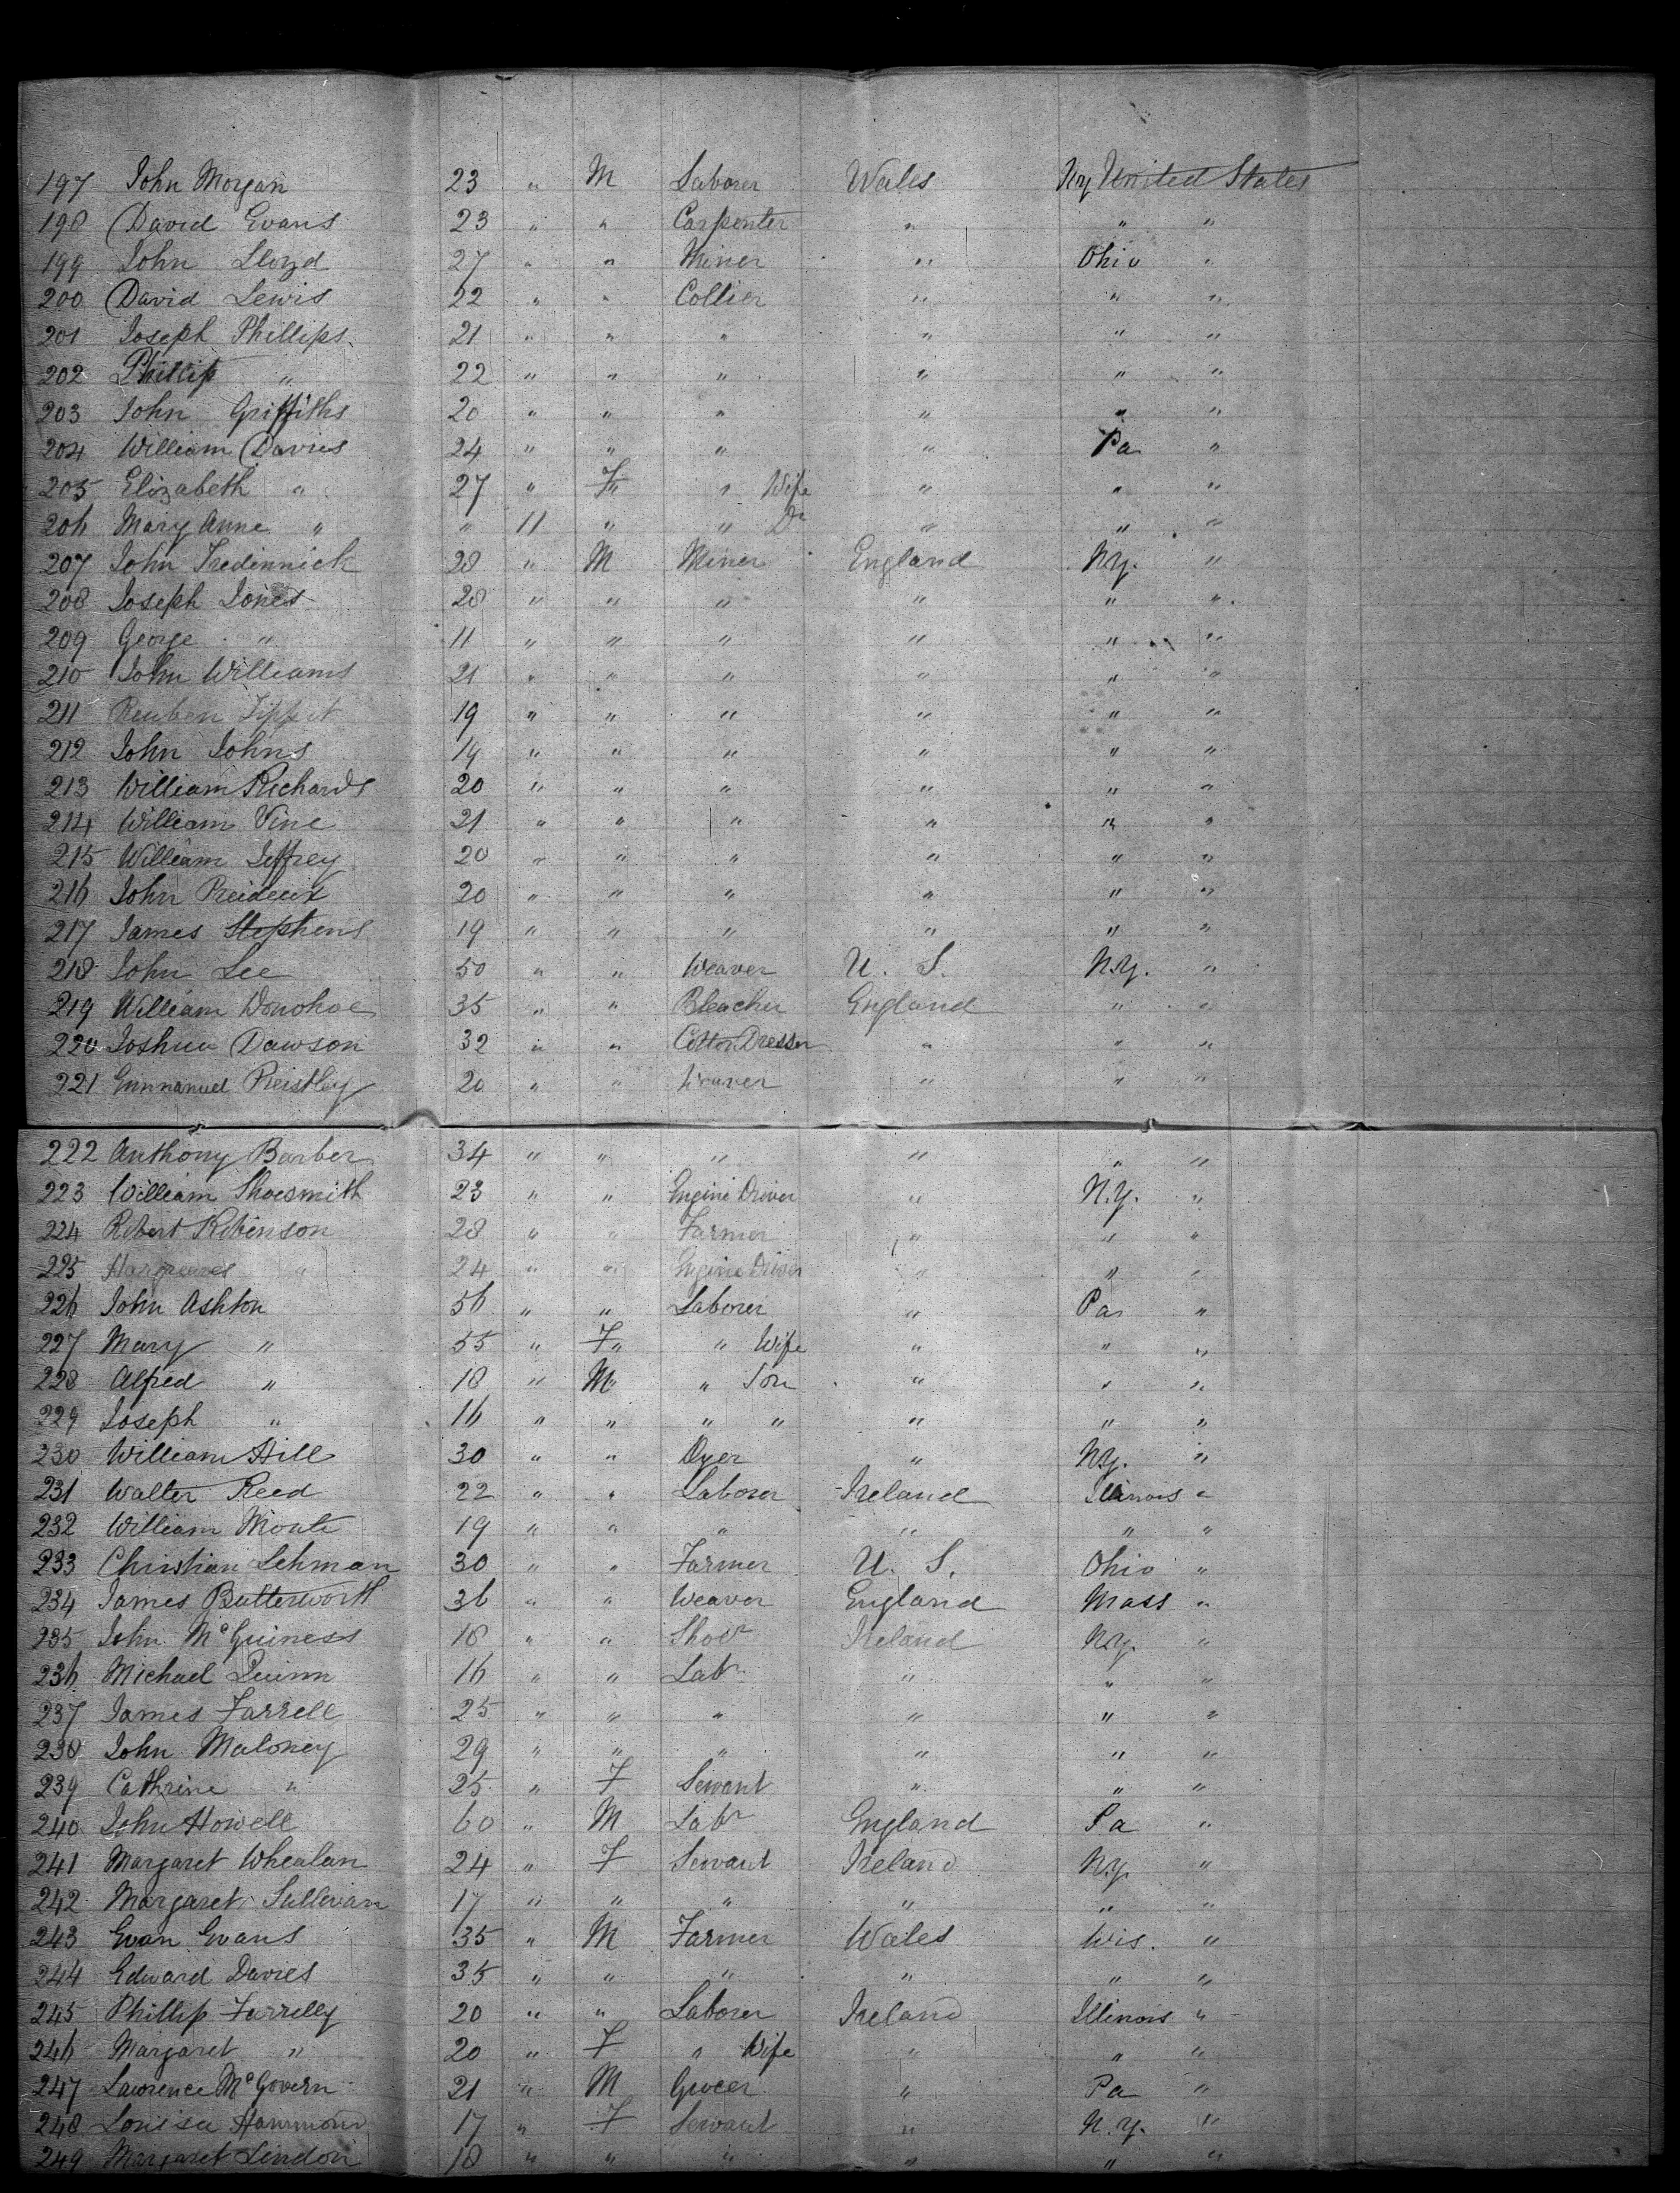 197 John Morgan 23 " M Laborer Wales N.y United States
198 David Evans 23 " " Carpenter " " "
199 John Lloyd 27 " " Miner " Ohio "
200 David Lewis 22 " " Collier " " "
201 Joseph Phillips 21 " " " " " "
202 Phillip " 22 " " " " " "
203 John Griffiths 20 " " " " " "
204 William Davies 24 " " " " Pa "
205 Elizabeth " 27 " F " Wife " " "
206 Mary Anne " " 11 " " Dr " " "
207 John Tredinnick 28 " M Miner England N.y. "
208 Joseph Jones 28 " " " " " "
209 George " 11 " " " " " "
210 John Williams 21 " " " " " "
211 Reuben Tippet 19 " " " " " "
212 John Johns 19 " " " " " "
213 William Richards 20 " " " " " "
214 William Vine 21 " " " " " "
215 William Jeffrey 20 " " " " " "
216 John Preideux 20 " " " " " "
217 James Stephens 19 " " " " " "
218 John Lee 50 " " Weaver U. S. N.y. "
219 William Donohoe 35 " " Bleacher England " "
220 Joshua Dawson 32 " " Cotton Dresser " " "
221 Emmanuel Preistley 20 " " Weaver " " "
222 Anthony Barber 34 " " " " " "
223 William Shoesmith 23 " " Engine Driver " N.y. "
224 Robert Robinson 28 " " Farmer " " "
225 Hargreaves " 24 " " Engine Driver " " "
226 John Ashton 56 " " Laborer " Pa "
227 Mary " 55 " F " Wife " " "
228 Alfred " 18 " M " Son " " "
229 Joseph " 16 " " " " " " "
230 William Hill 30 " " Dyer " N.y. "
231 Walter Reed 22 " " Laborer Ireland Illinois "
232 William 19 " " " " " "
233 Christian Lehman 30 " " Farmer U. S. Ohio "
234 James Butterworth 36 " " Weaver England Mass "
235 John McGuiness 18 " " Shoer Ireland N.y. "
236 Michael Quinn 16 " " Labr " " "
237 James Farrell 25 " " " " " "
238 John Maloney 29 " " " " " "
239 Cathrine " 25 " F Servant " " "
240 John Howell 60 " M Labr England Pa "
241 Margaret Whealan 24 " F Servant Ireland N.y. "
242 Margaret Sullivan 17 " " " " " "
243 Evan Evans 35 " M Farmer Wales Wis. "
244 Edward Davies 35 " " " " " "
245 Phillip Farrelly 20 " " Laborer Ireland Illinois "
246 Margaret " 20 " F " Wife " " "
247 Lawrence McGovern 21 " M Grocer " Pa "
248 Louisa Hammond 17 " F Servant " N.y. "
249 Margaret Lindon 18 " " " " " "